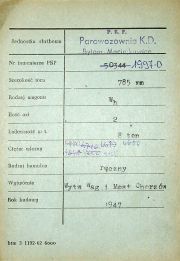 P. K. P.
Jednostka służbowa Parowozownia K.D.
Bytom
Nr inwentarza PKP 50344 1997-D
Szerokość toru 785 mm
Rodzaj wagonu Wh
Ilość osi 2
Ładowność w t. 8 ton
Ciężar własny
Rodzaj hamulca ręczny
Wytwórnia Wytw. Wag i Most Chorzów
Rok budowy 1947